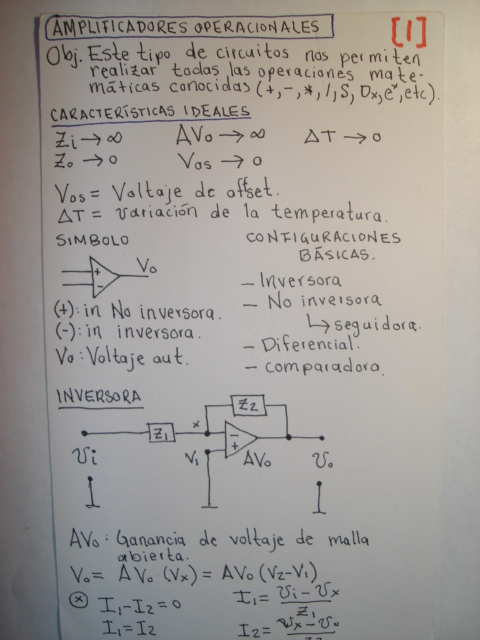 AMPLIFICADORES OPERACIONALES
[1]
Obj. Este tipo de circuitos nos permiten
realizar todas las operaciones mate-
máticas conocidas (+,-,*,/,S, Dx,eˣ,etc).
CARACTERÍSTICAS IDEALES
Zi → ∞ AVo → ∞ ΔT → 0
Zo → 0 Vos → 0
Vos = Voltaje de offset.
ΔT = variación de la temperatura.
SIMBOLO
+
-
Vo
(+): in No inversora.
(-): in inversora.
Vo: Voltaje aut.
CONFIGURACIONES
BÁSICAS.
- Inversora
- No inversora
↳ seguidora.
- Diferencial.
- comparadora.
INVERSORA
Z2
Z1 x -
+
Vi V1 AVo Vo
AVo: Ganancia de voltaje de malla
abierta.
Vo = AVo·(Vx) = AVo(V2-V1)
ⓧ I1-I2=0 I1 = Vi-Vx / Z1
I1=I2 I2 = Vx-Vo